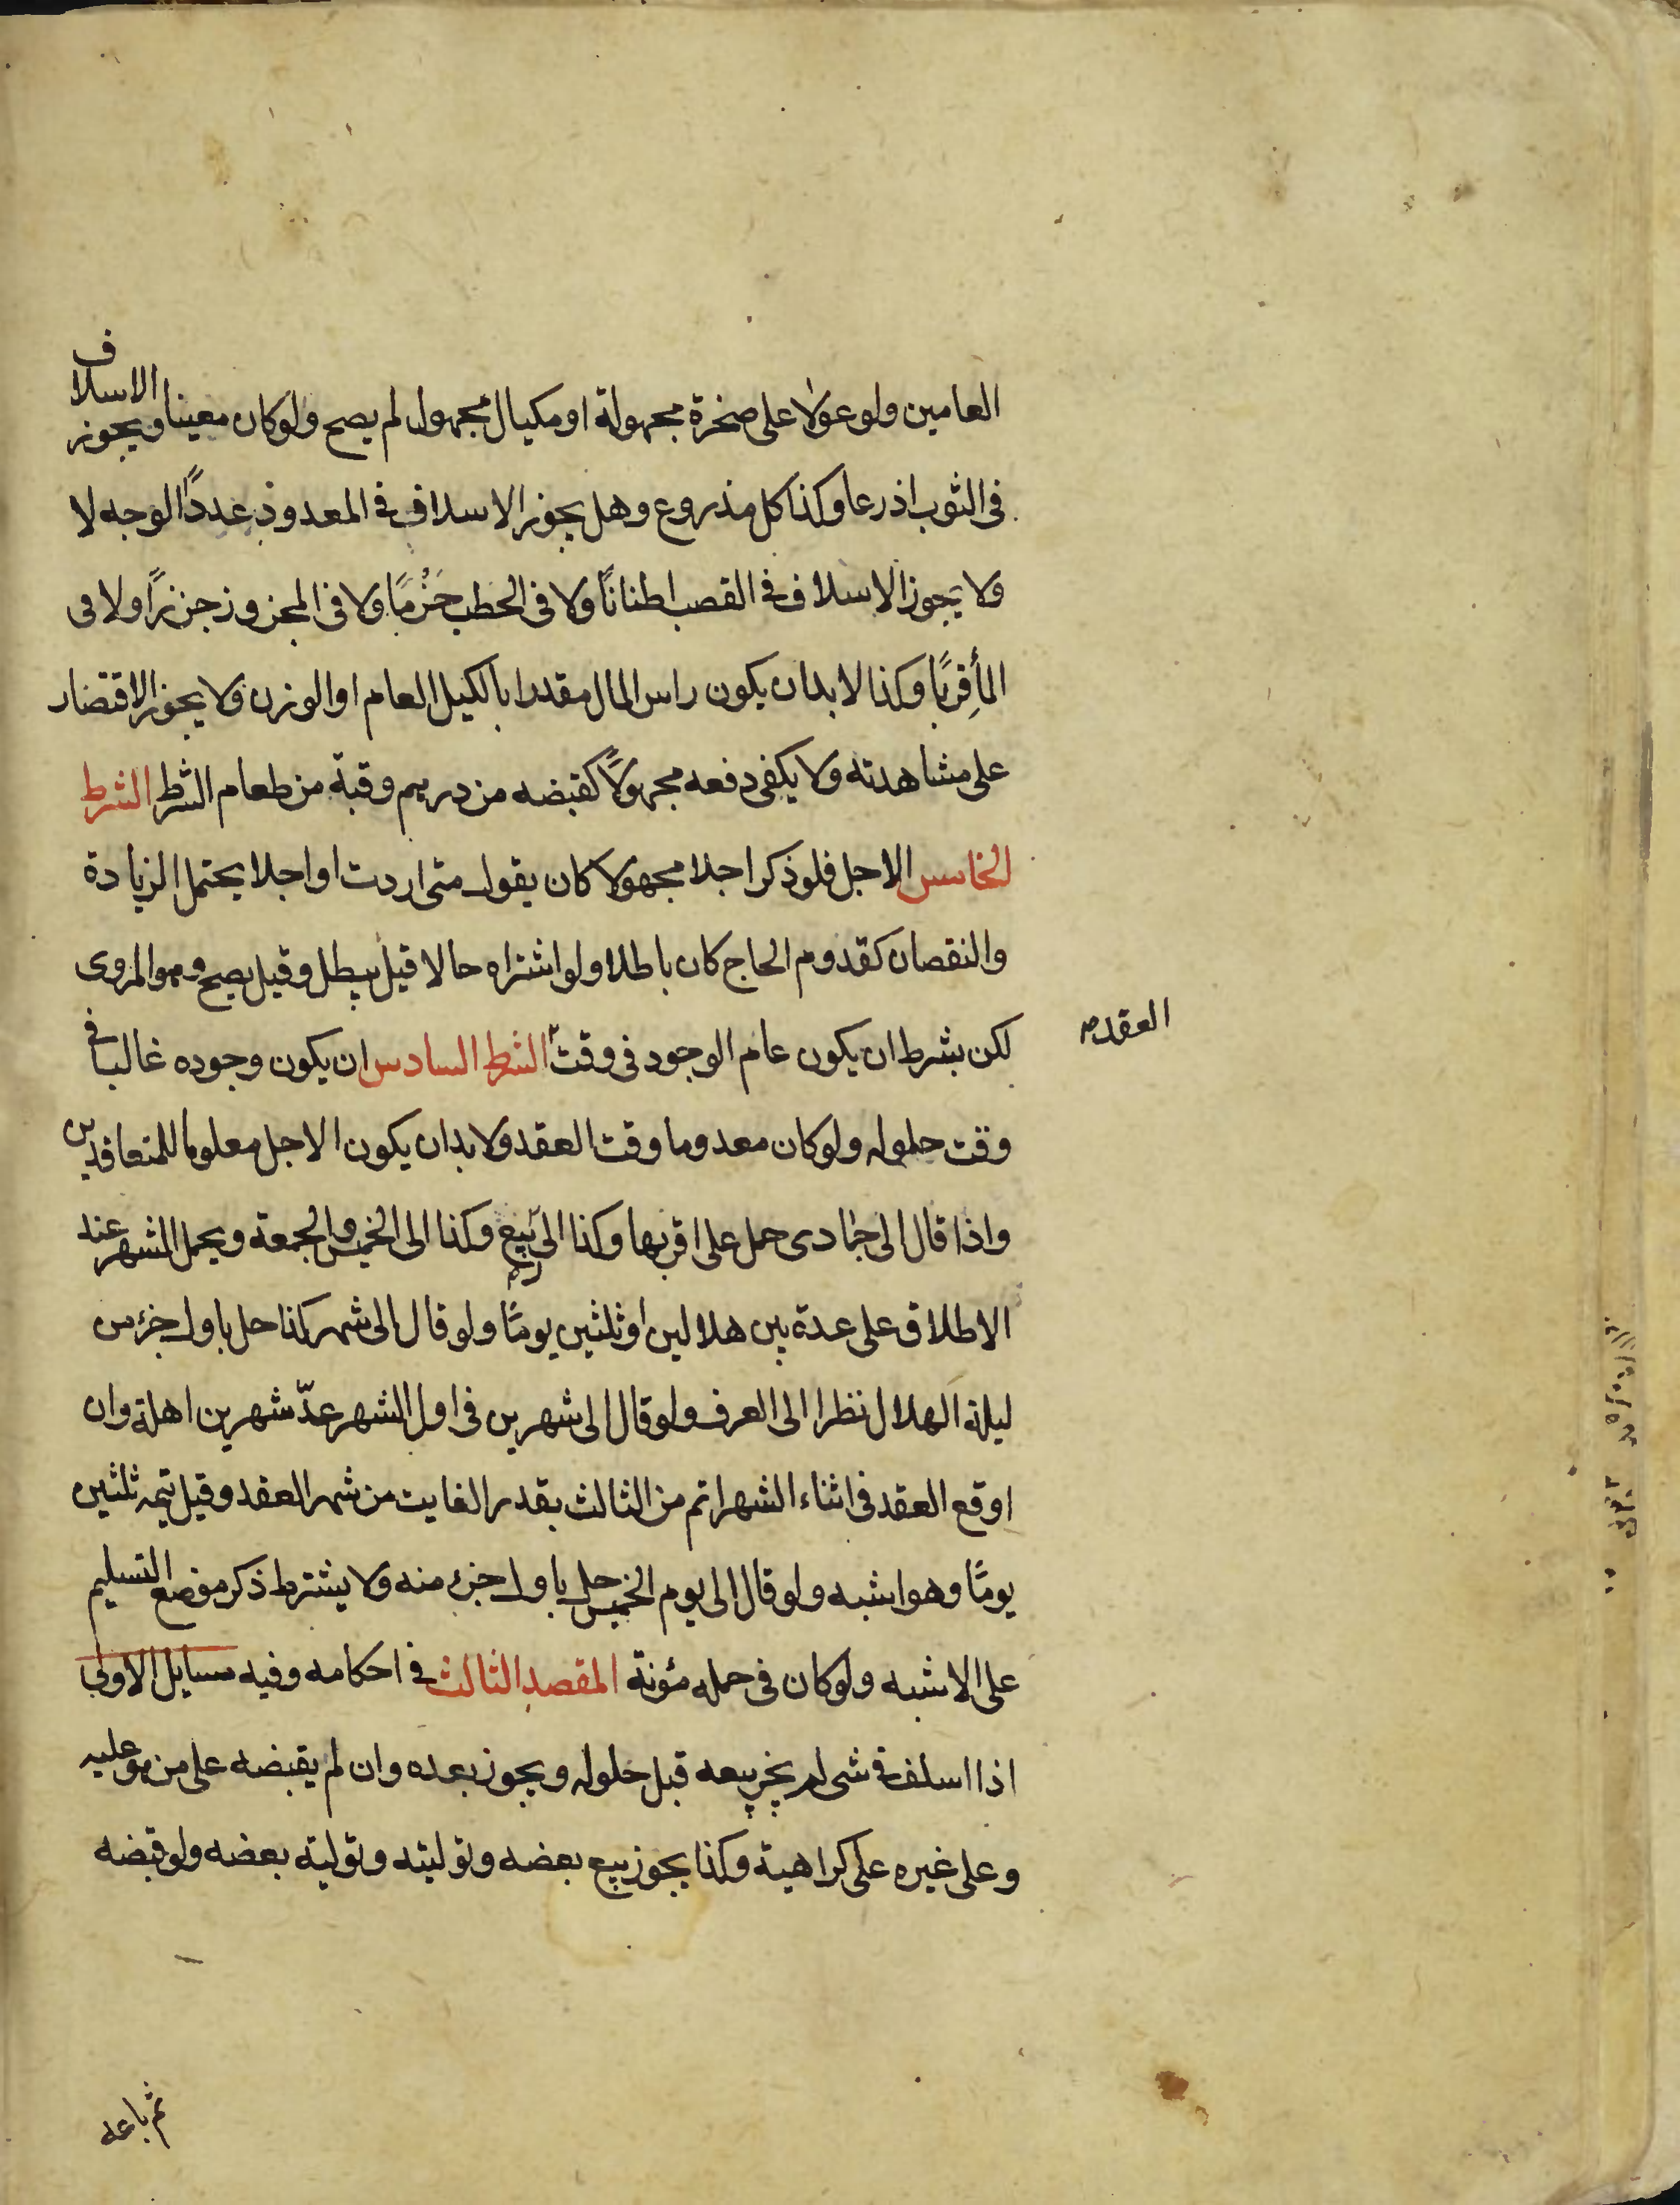 العامين ولو عولا على صخرة مجهولة او مكيال مجهول لم يصح ولو كان معينا ويجوز الاسلاف
فى الثوب اذرعا وكذا كل مذروع وهل يجوز الاسلاف فى المعدود عددًا الوجه لا
ولا يجوز الاسلاف فى القصب اطنانًا ولا فى الحطب حَزُمًا ولا فى المجزوز جززًا ولا فى
المأ قِرَبًا وكذا لا بد ان يكون راس المال مقدرا بالكيل العام او الوزن ولا يجوز الاقتضار
على مشاهدته ولا يكفى دفعه مجهولًا كقبضه من دريهم وقبة من طعام الشرط الشرط
الخامس الاجل فلو ذكر اجلا مجهولا كان يقول متى اردت او اجلا يحتمل الزيادة
والنقصان كقدوم الحاج كان باطلا ولو اشتراه حالا قيل يبطل وقيل يصح وهو المروى
لكن بشرط ان يكون عام الوجود فى وقت الشرط السادس ان يكون وجوده غالبا فى
العقد صح
وقت حلوله ولو كان معدوما وقت العقد ولا بد ان يكون الاجل معلوما للمتعاقدين
واذا قال الى جمادى حمل على اقربها وكذا الى ربيع وكذا الى الخميس والجمعة ويحمل الشهر عند
الاطلاق على عدة بين هلالين او ثلثين يومًا ولو قال الى شهر كذا حل باول جزء من
ليلة الهلال نظرا الى العرف ولو قال الى شهرين فى اول الشهر عدّ شهرين اهلة وان
اوقع العقد فى اثناء الشهر اتم من الثالث بقدر الفايت من شهر العقد وقيل يتمه ثلثين
يومًا وهو اشبه ولو قال الى يوم الخميس حل باول جزء منه ولا يشترط ذكر موضع التسليم
على الاشبه ولو كان فى حمله مؤنة المقصد الثالث فى احكامه وفيه مسايل الاولى
اذا اسلف فى شى لم يجز بيعه قبل حلوله ويجوز بعده وان لم يقبضه على من هو عليه
وعلى غيره على كراهية وكذا يجوز بيع بعضه وتوليته وتولية بعضه ولو قبضه
ثم باعه